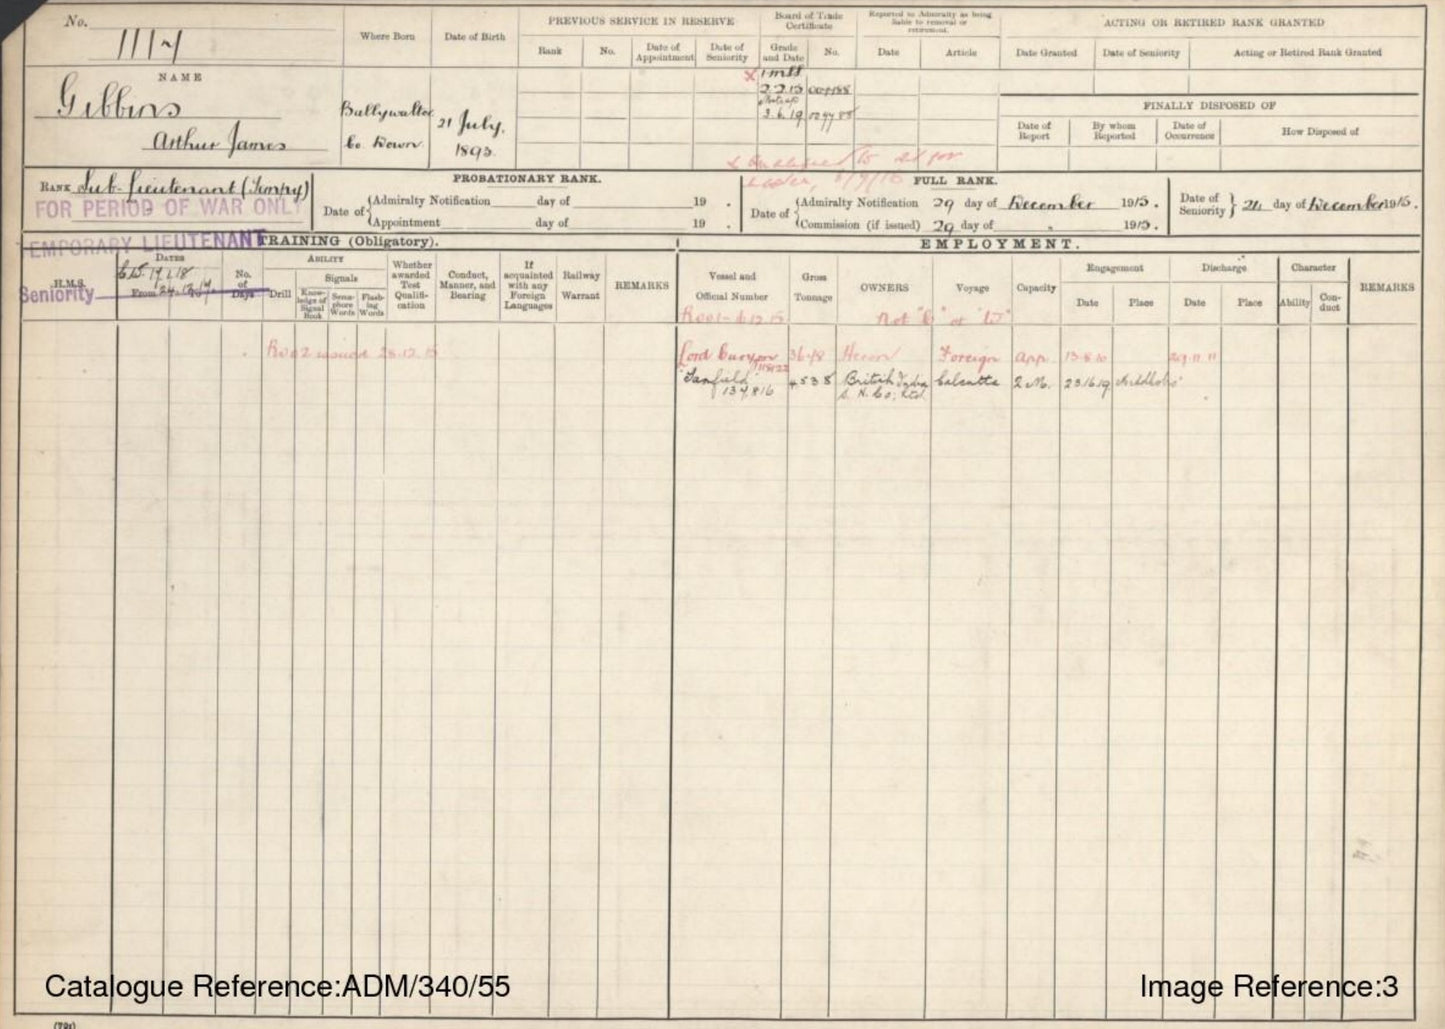 No.
NAME
Gibbins
Arthur James
Where Born
Ballywalter
Co. Down
Date of Birth
21 July.
1893.
PREVIOUS SERVICE IN RESERVE
Rank
No.
Date of Appointment
Date of Seniority
Board of Trade Certificate
Grade and Date
No.
1 Mate
2.2.15
3.6.19
Reported to Admiralty as being liable to removal or retirement.
Date
Article
ACTING OR RETIRED RANK GRANTED
Date Granted
Date of Seniority
Acting or Retired Rank Granted
FINALLY DISPOSED OF
Date of Report
By whom Reported
Date of Occurrence
How Disposed of
RANK Sub-Lieutenant (Tempy)
FOR PERIOD OF WAR ONLY
PROBATIONARY RANK.
Date of
Admiralty Notification day of 19 .
Appointment day of 19 .
FULL RANK.
Date of
Admiralty Notification 29 day of December 1915.
Commission (if issued) 29 day of " 1915.
Date of Seniority } 24 day of December 1915.
TEMPORARY LIEUTENANT
Seniority
TRAINING (Obligatory).
H.M.S.
DATES
From
No. of Days
ABILITY
Drill
Signals
Knowledge of Signal Book
Semaphore Words
Flashing Words
Whether awarded Test Qualification
Conduct, Manner, and Bearing
If acquainted with any Foreign Languages
Railway Warrant
REMARKS
R002 issued 28.12.15
EMPLOYMENT.
Vessel and Official Number
Gross Tonnage
OWNERS
Voyage
Capacity
Engagement
Date
Place
Discharge
Date
Place
Character
Ability
Conduct
REMARKS
R001-6.12.15
Not "C" or "W"
Lord Curzon 3648 Heron Foreign App. 13.8.10 29.11.11
"Tanfield" 4538 British India Calcutta 2 M. 23.6.19 Middlbro'
S. N. Co; Ltd.
Catalogue Reference:ADM/340/55
Image Reference:3